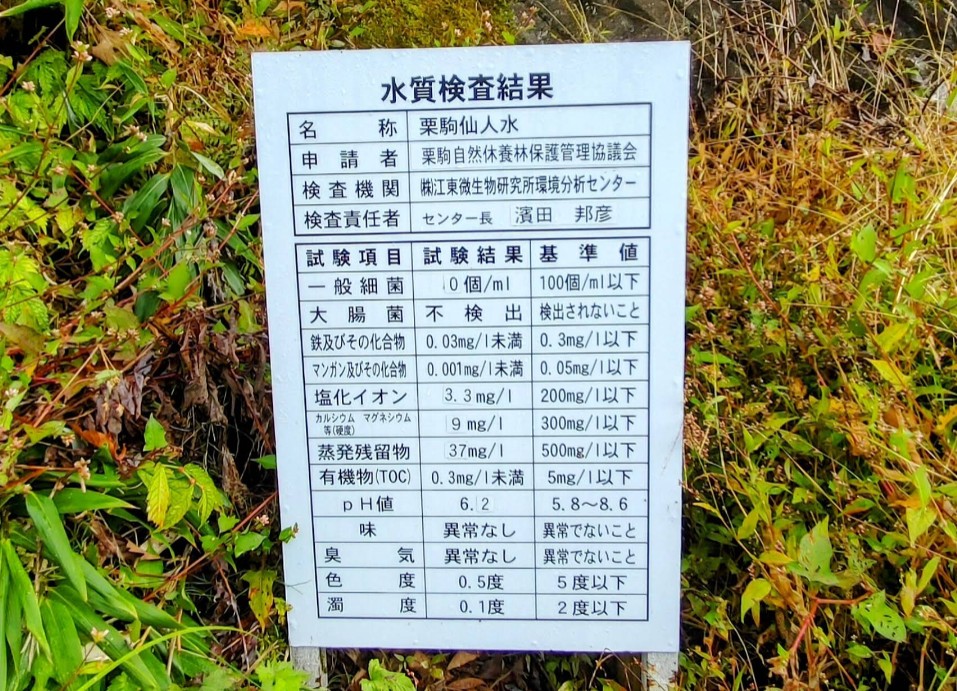 水質検査結果
名称 栗駒仙人水
申請者 栗駒自然休養林保護管理協議会
検査機関 ㈱江東微生物研究所環境分析センター
検査責任者 センター長 濱田 邦彦
試験項目 試験結果 基準値
一般細菌 0個/ml 100個/ml以下
大腸菌 不検出 検出されないこと
鉄及びその化合物 0.03mg/l未満 0.3mg/l以下
マンガン及びその化合物 0.001mg/l未満 0.05mg/l以下
塩化イオン 3.3mg/l 200mg/l以下
カルシウム マグネシウム等(硬度) 9mg/l 300mg/l以下
蒸発残留物 37mg/l 500mg/l以下
有機物(TOC) 0.3mg/l未満 5mg/l以下
pH値 6.2 5.8～8.6
味 異常なし 異常でないこと
臭気 異常なし 異常でないこと
色度 0.5度 5度以下
濁度 0.1度 2度以下